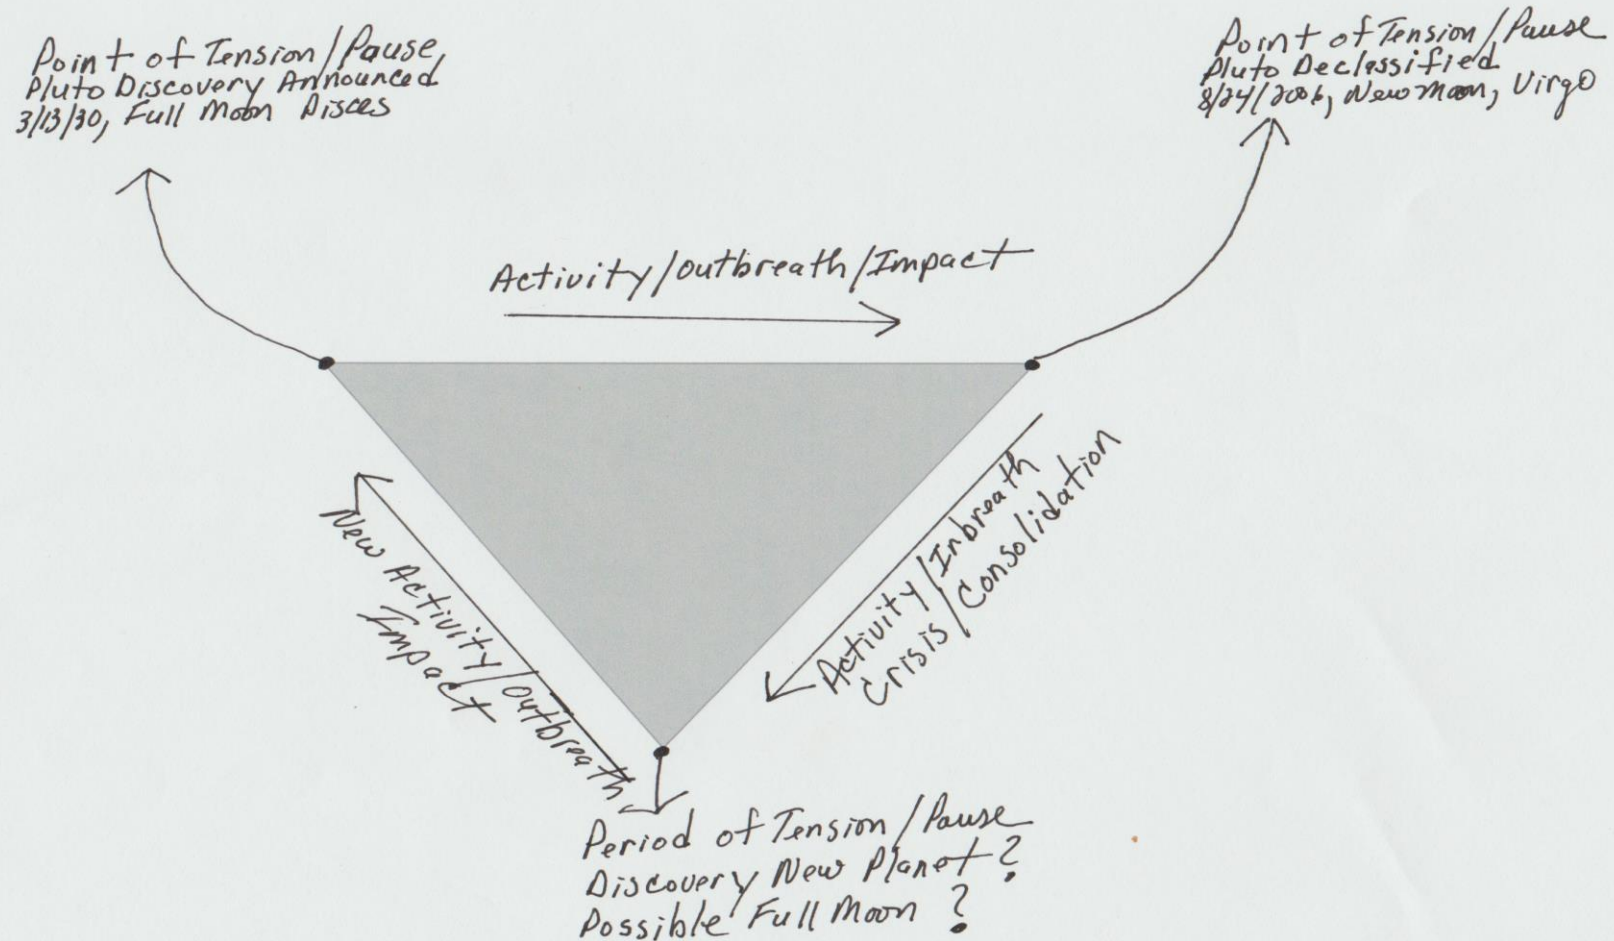 Point of Tension/Pause,
Pluto Discovery Announced
3/13/30, Full Moon Pisces
Point of Tension/Pause
Pluto Declassified
8/24/2006, New Moon, Virgo
Activity/Outbreath/Impact
Activity/Inbreath
Crisis/Consolidation
New Activity/Outbreath
Impact
Period of Tension/Pause
Discovery New Planet?
Possible Full Moon?